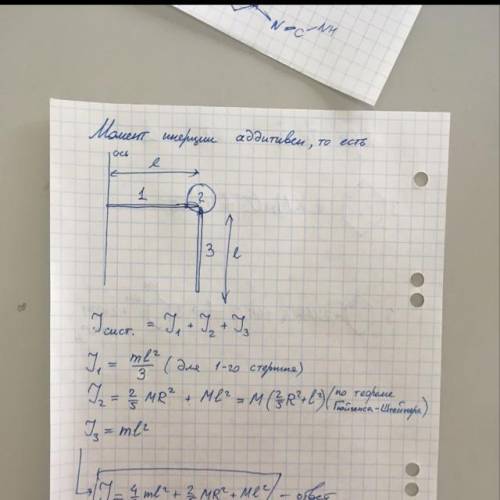 N=C-NH
Момент инерции аддитивен, то есть
ось
l
1
2
3
l
Jсист. = J₁ + J₂ + J₃
J₁ = ml²/3 (для 1-го стержня)
J₂ = 2/5 MR² + Ml² = M(2/5 R² + l²) (по теореме Гюйгенса-Штейнера)
J₃ = ml²
J = 4/3 ml² + 2/5 MR² + Ml² - ответ